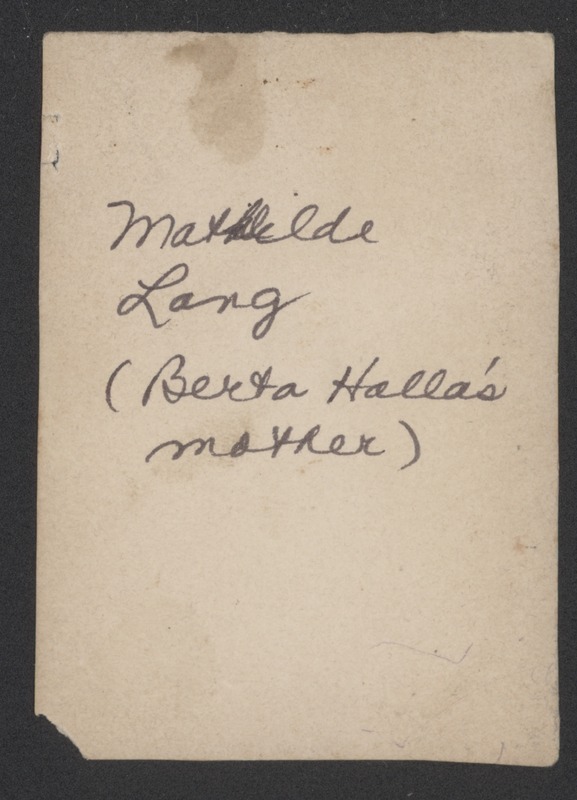 Mathilde
Lang
(Berta Halla's
mother)